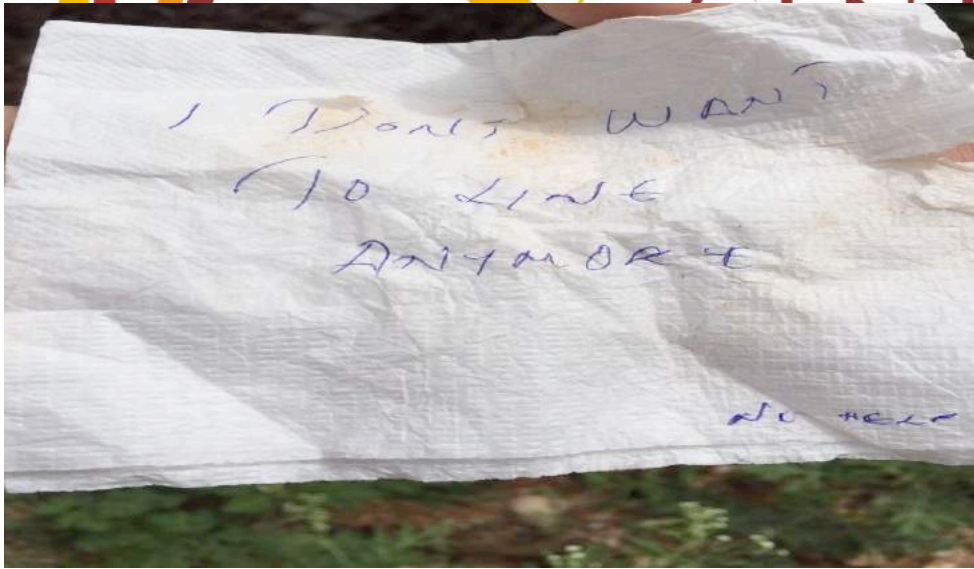 I DONT WANT
TO LIVE
ANYMORE
NO HELP